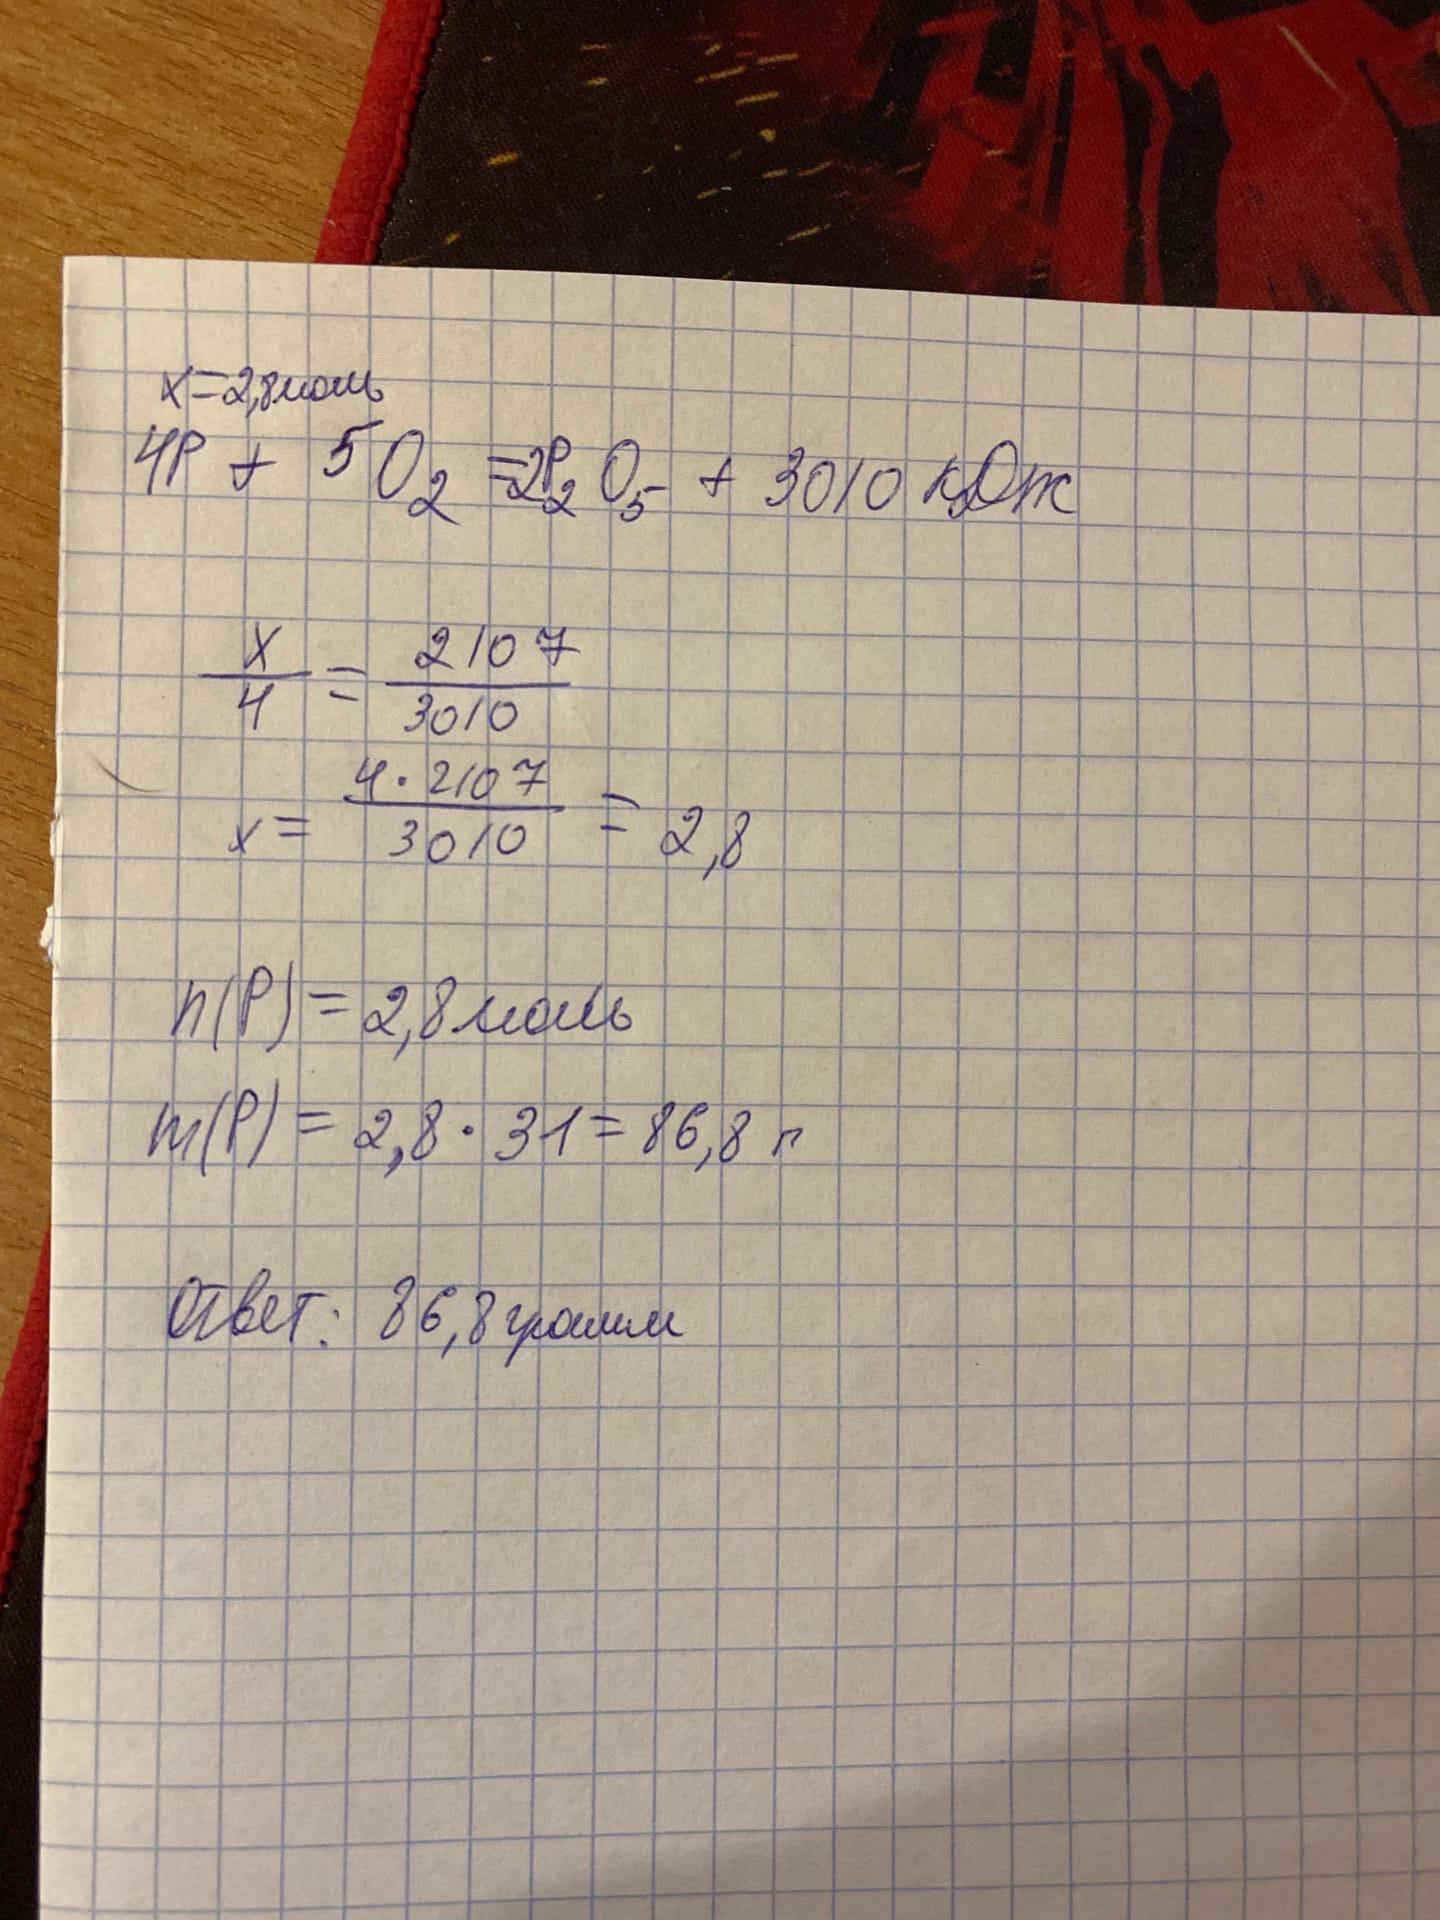 x=2,8моль
4P + 5O₂ =2P₂O₅ + 3010 кДж
x/4 = 2107/3010
x= 4·2107/3010 = 2,8
n(P) = 2,8моль
m(P) = 2,8·31=86,8 г
Ответ: 86,8грамм